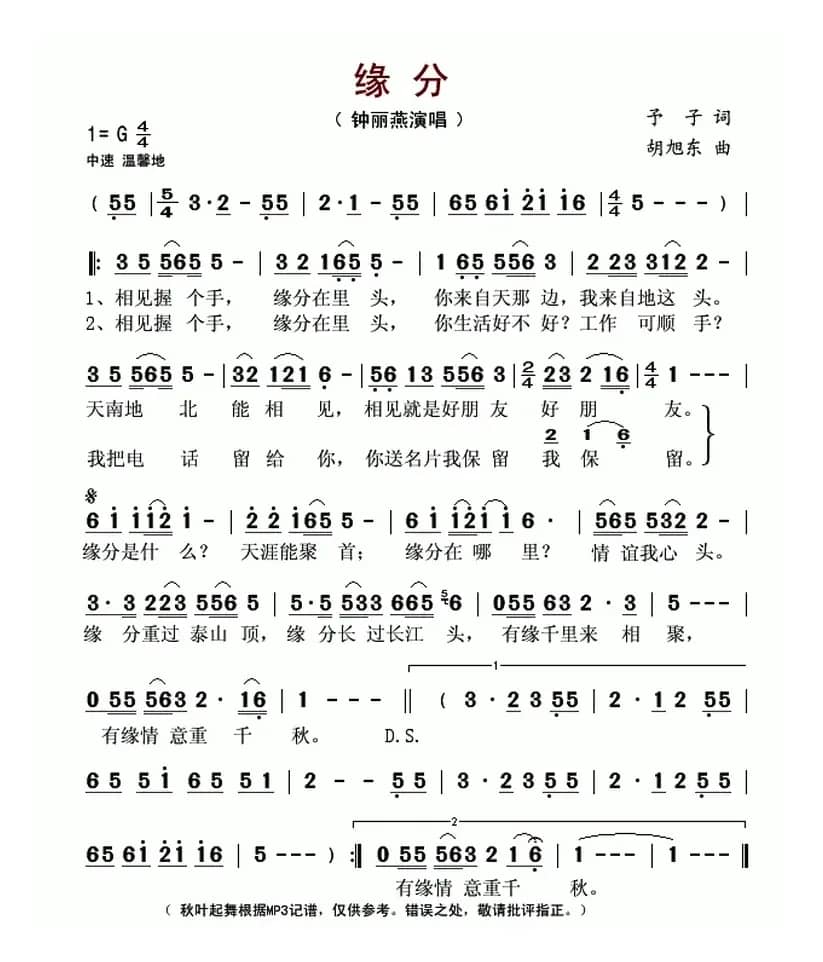 缘 分
（ 钟丽燕演唱 ）
予 子 词
1= G 4/4
胡旭东 曲
中速 温馨地
( 55 | 5/4 3·2 - 55 | 2·1 - 55 | 65 61 21 16 | 4/4 5 - - - ) |
‖: 3 5 565 5 - | 3 2 165 5 - | 1 65 556 3 | 2 223 312 2 - |
1、相见握 个手， 缘分在里 头， 你来自天那 边，我来自地这 头。
2、相见握 个手， 缘分在里 头， 你生活好不 好？工作 可顺 手？
3 5 565 5 - | 32 121 6 - | 56 13 556 3 | 2/4 23 2 16 | 4/4 1 - - - |
天南地 北 能 相 见，相见就是好朋 友 好 朋 友。
2 1 6
我把电 话 留 给 你，你送名片我保 留 我 保 留。
6 1 112 1 - | 2 2 165 5 - | 6 1 121 1 6 · | 565 532 2 - |
缘分是什 么？ 天涯能聚 首； 缘分在 哪 里？ 情 谊我心 头。
3 · 3 223 556 5 | 5·5 533 665 5 6 | 055 63 2 · 3 | 5 - - - |
缘 分重过 泰山 顶，缘 分长 过长江 头，有缘千里来 相 聚，
1
0 55 563 2 · 16 | 1 - - - ‖ ( 3 · 2 3 55 | 2 · 1 2 55 |
有缘情 意重 千 秋。 D.S.
65 51 65 51 | 2 - - 55 | 3 · 2 3 5 5 | 2 · 1 2 5 5 |
2
65 61 21 16 | 5 - - - ) :‖ 0 55 563 2 1 6 | 1 - - - | 1 - - - ‖
有缘情 意重千 秋。
（ 秋叶起舞根据MP3记谱，仅供参考。错误之处，敬请批评指正。）